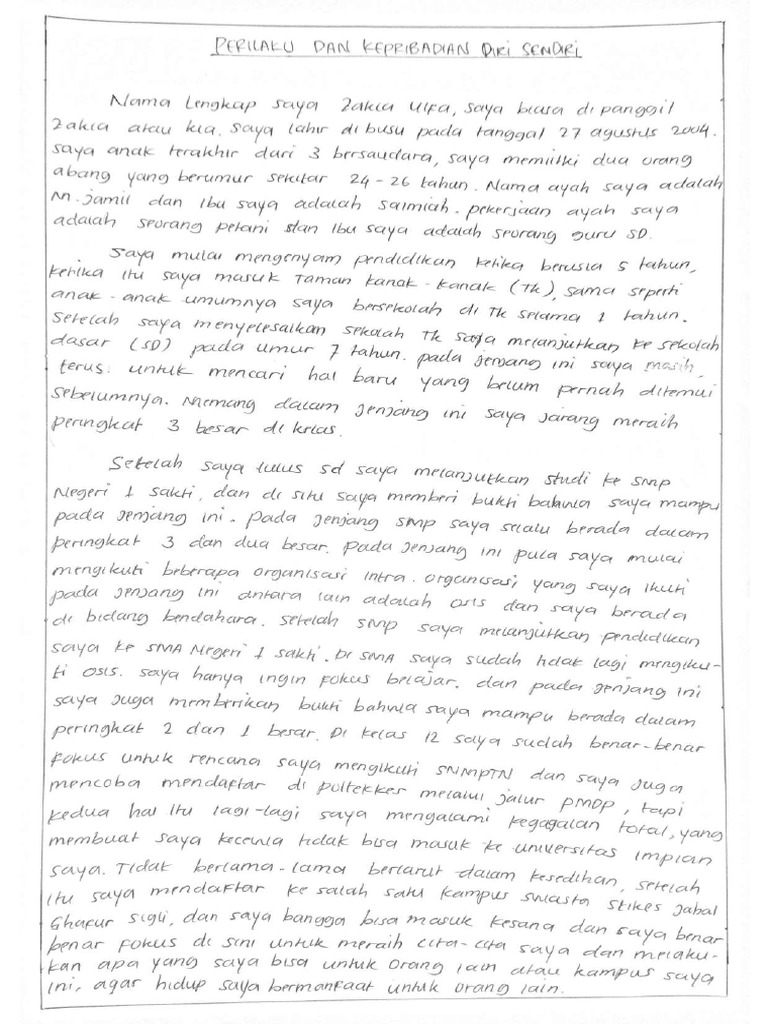 PERILAKU DAN KEPRIBADIAN DIRI SENDIRI
Nama Lengkap saya Zakia Ulfa, saya biasa di panggil
Zakia atau kia. saya lahir di busu pada tanggal 27 agustus 2004.
saya anak terakhir dari 3 bersaudara, saya memiilki dua orang
abang yang berumur sekitar 24-26 tahun. Nama ayah saya adalah
M. jamil dan Ibu saya adalah salmiah. pekerjaan ayah saya
adalah seorang petani dan Ibu saya adalah seorang guru SD.
Saya mulai mengenyam pendidikan ketika berusia 5 tahun,
ketika itu saya masuk Taman kanak-kanak (TK), sama seperti
anak-anak umumnya saya bersekolah di TK selama 1 tahun.
Setelah saya menyelesaikan sekolah TK saya melanjutkan ke sekolah
dasar (SD) pada umur 7 tahun. pada jenjang ini saya masih
terus. untuk mencari hal baru yang belum pernah ditemui
sebelumnya. Memang dalam jenjang ini saya jarang meraih
peringkat 3 besar di kelas.
Setelah saya lulus sd saya melanjutkan studi ke SMP
Negeri 1 sakti, dan di situ saya memberi bukti bahwa saya mampu
pada jenjang ini. Pada jenjang smp saya selalu berada dalam
peringkat 3 dan dua besar. Pada jenjang ini pula saya mulai
mengikuti beberapa organisasi intra. organisasi yang saya ikuti
pada jenjang ini antara lain adalah osis dan saya berada
di bidang bendahara. setelah SMP saya melanjutkan pendidikan
saya ke SMA Negeri 1 sakti. Di SMA saya sudah tidak lagi mengiku-
ti osis. saya hanya ingin fokus belajar. dan pada jenjang ini
saya juga memberikan bukti bahwa saya mampu berada dalam
peringkat 2 dan 1 besar. Di kelas 12 saya sudah benar-benar
fokus untuk rencana saya mengikuti SNMPTN dan saya juga
mencoba mendaftar di poltekkes melalui jalur PMDP, tapi
kedua hal itu lagi-lagi saya mengalami kegagalan total, yang
membuat saya kecewa tidak bisa masuk ke universitas impian
saya. Tidak berlama-lama berlarut dalam kesedihan, setelah
itu saya mendaftar ke salah satu kampus swasta stikes jabal
Ghafur sigli, dan saya bangga bisa masuk kesana dan saya benar
benar fokus di sini untuk meraih cita-cita saya dan melaku-
-kan apa yang saya bisa untuk orang lain atau kampus saya
ini, agar hidup saya bermanfaat untuk orang lain.